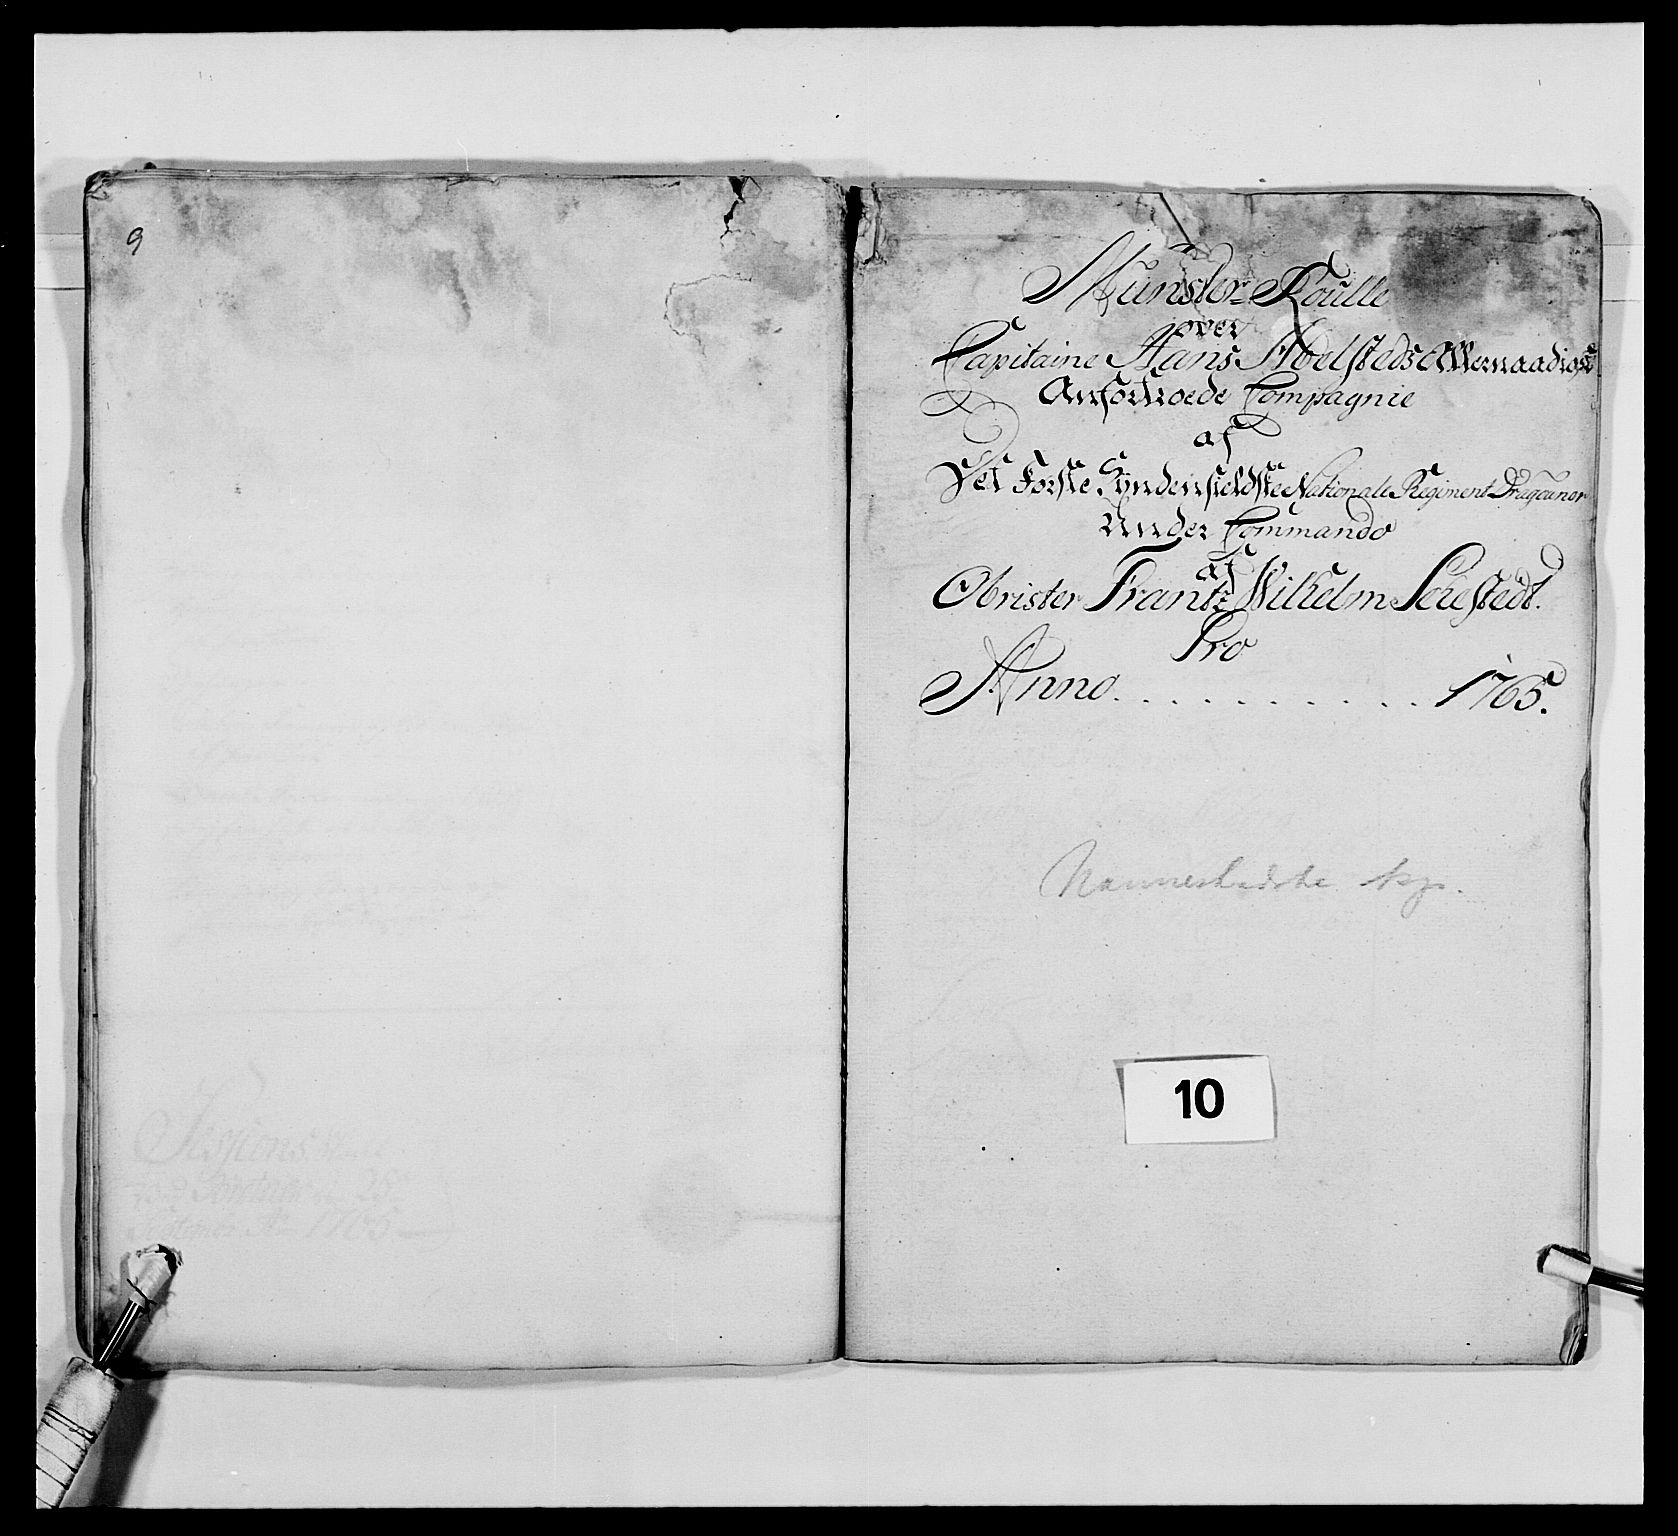 9
Münster-Roulle
over
Capitaine Hans Abelsteds Allernaadigst
Anfortroede Compagnie
af
Det Förste Syndenfieldske Nationale Regiment Dragouner
Under Commando
af
Obrister Frantz Wilhelm Sehestedt.
Pro
Anno . . . . . . . . . . 1765.
Nannestadske kp.
10
Sessions
28
1765